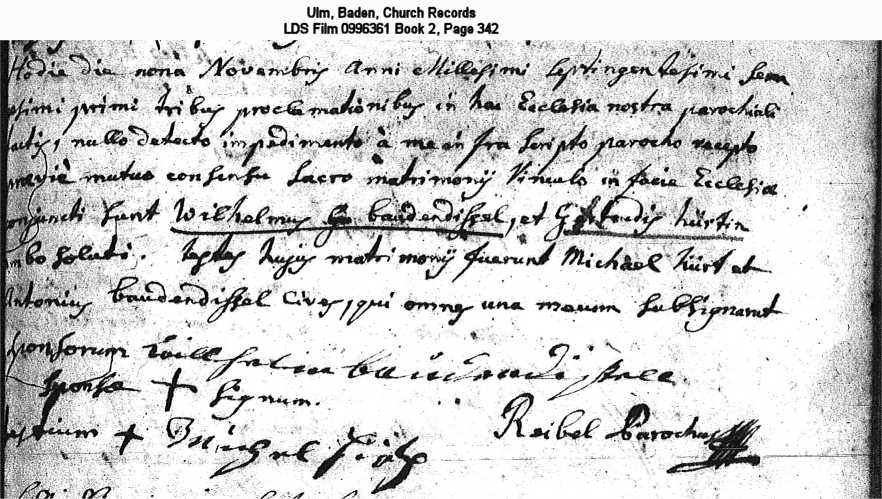 Ulm, Baden, Church Records
LDS Film 0996361 Book 2, Page 342
Hodie die nona Novembris Anni Millesimi Septingentesimi
primi tribus proclamationibus in hac Ecclesia nostra parochiali
factis, nullo detecto impedimento à me infra scripto parocho recepto
mutuo consensu Sacro matrimonij Vinculo in facie Ecclesiæ
conjuncti sunt Wilhelmus baudendissel, et Gertrudis hürtin
ambo soluti. testes hujus matrimonij fuerunt Michael hürt et
Antonius baudendissel cives, qui omnes una mecum subsignarunt
sponsorum
sponsæ + signum.
testium + Michel
Reibel Parochus